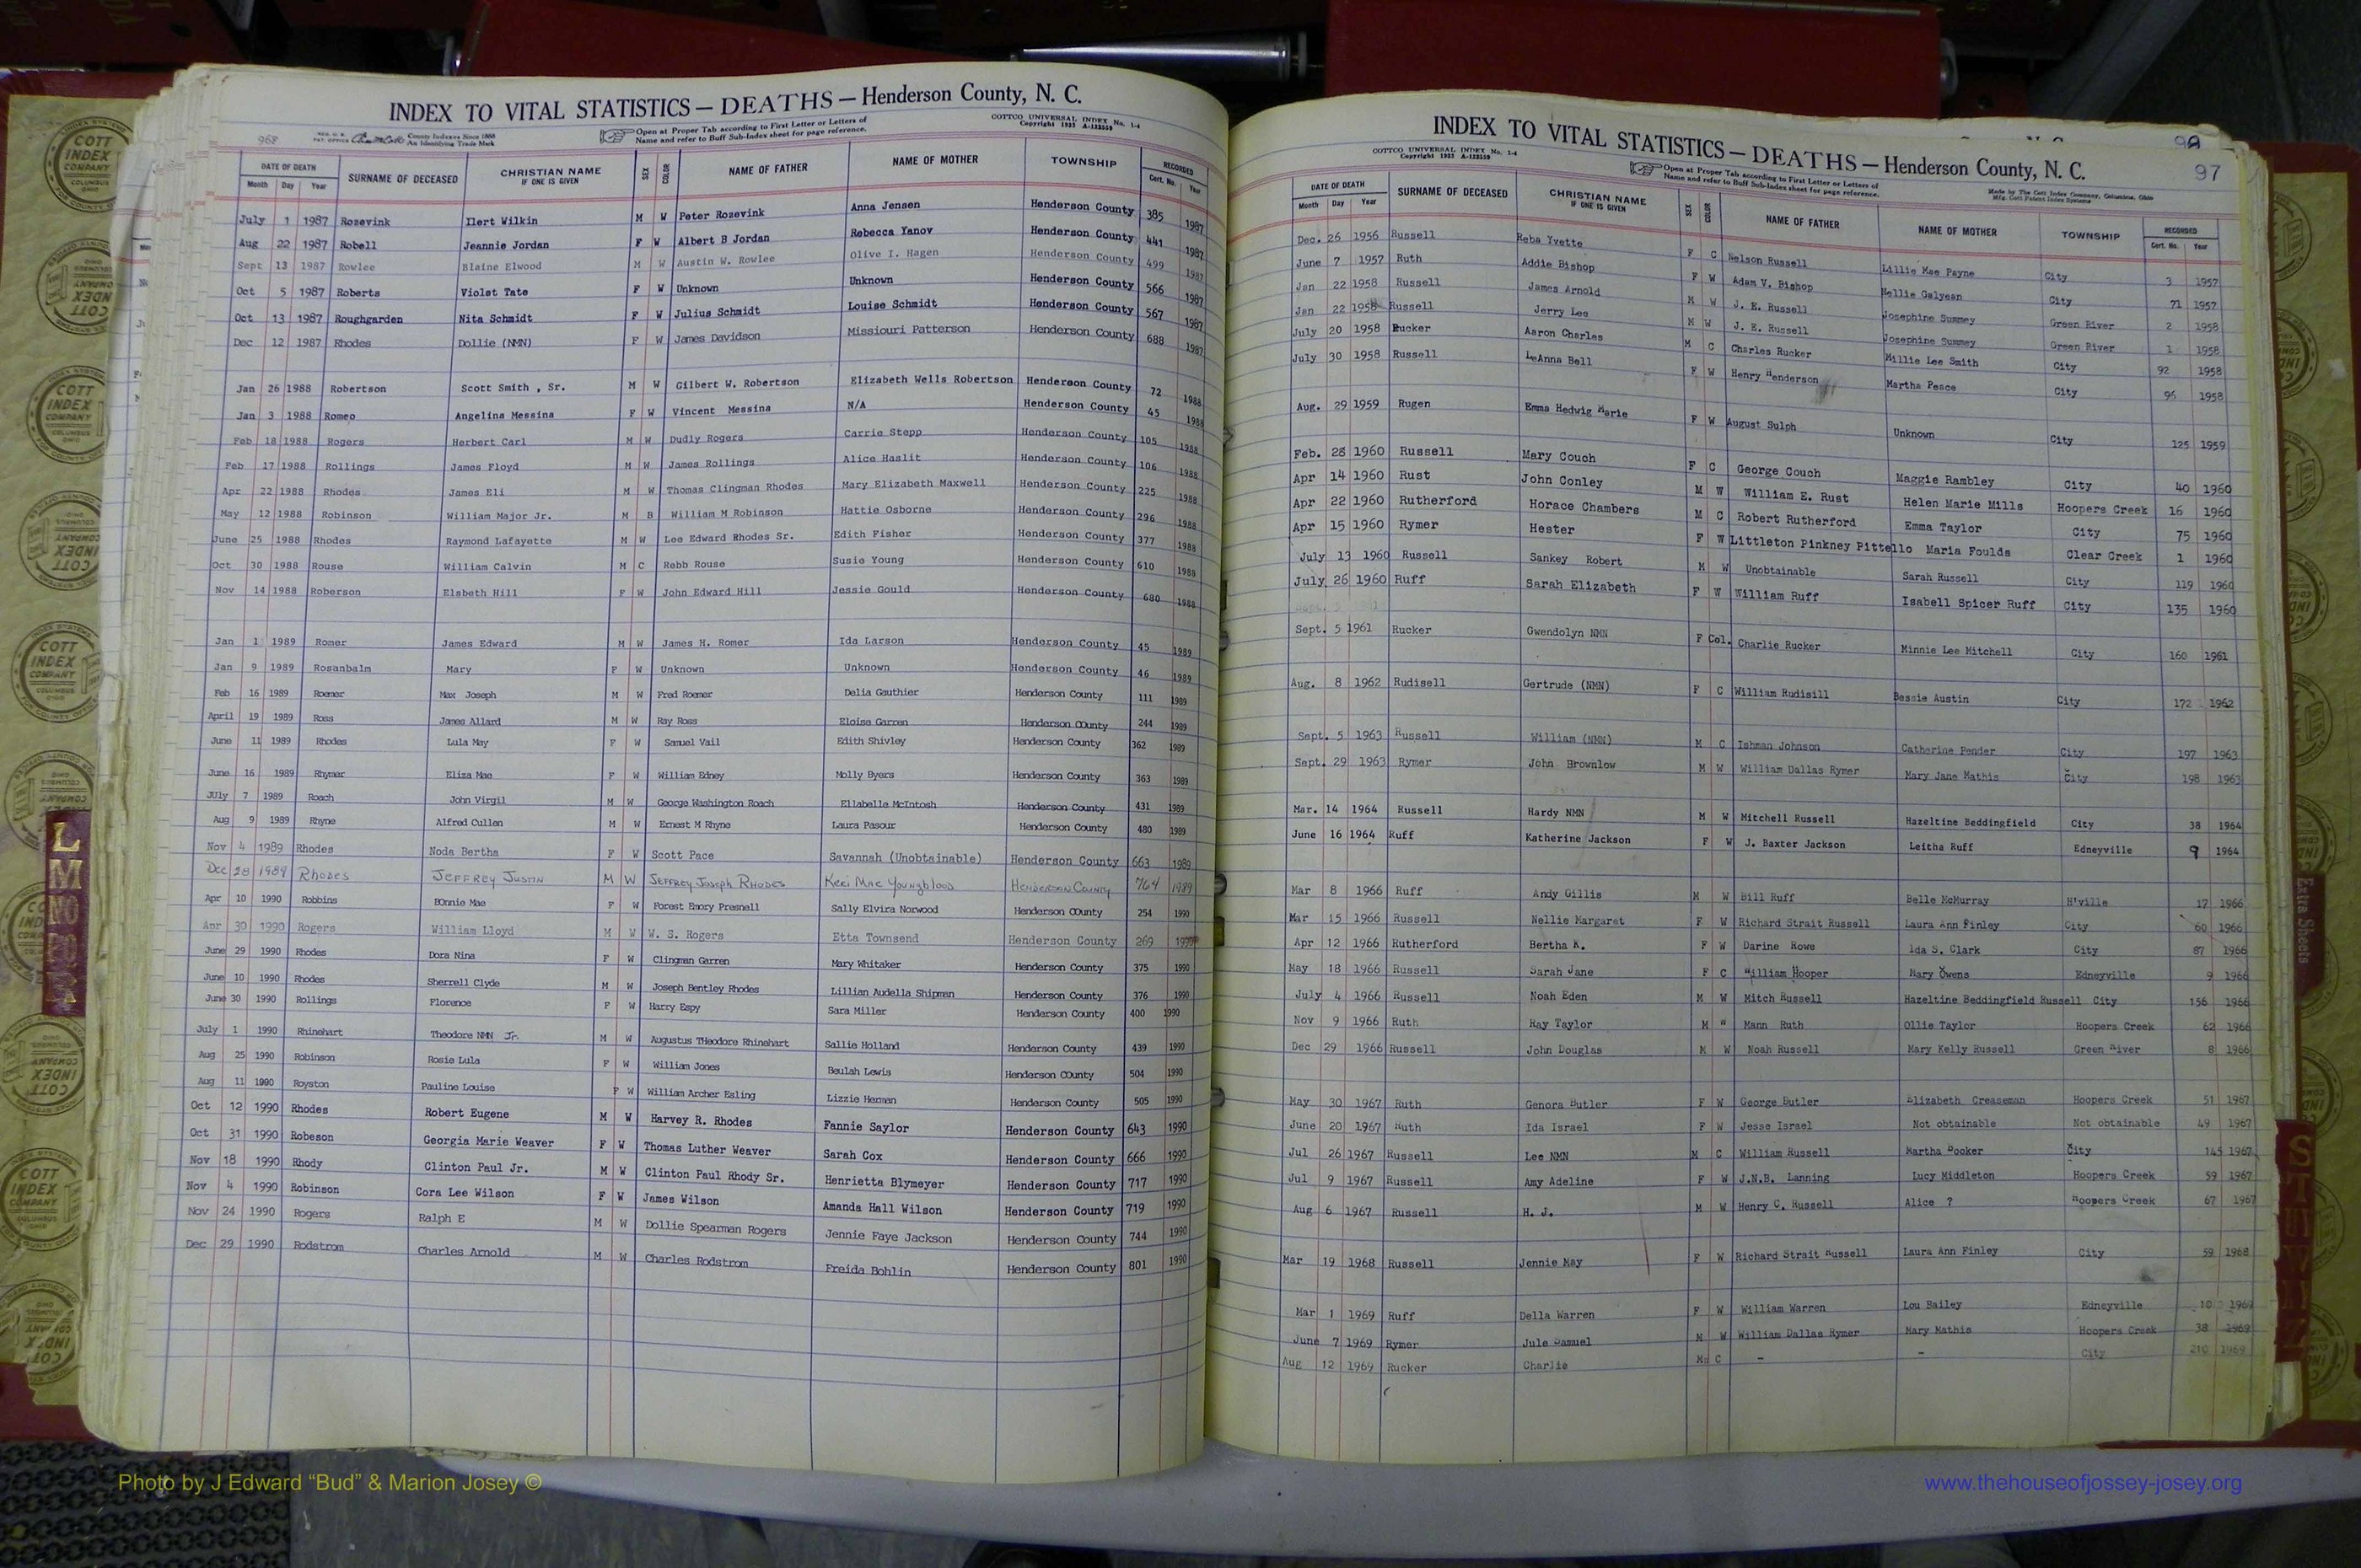 INDEX TO VITAL STATISTICS — DEATHS — Henderson County, N. C.
968
County Indexes Since 1888
An Identifying Trade Mark
Open at Proper Tab according to First Letter or Letters of
Name and refer to Buff Sub-Index sheet for page reference.
COTTCO UNIVERSAL INDEX No. 1-4
Copyright 1935 A-123559
DATE OF DEATH SURNAME OF DECEASED CHRISTIAN NAME IF ONE IS GIVEN SEX COLOR NAME OF FATHER NAME OF MOTHER TOWNSHIP RECORDED
Month Day Year Cert. No. Year
July 1 1987 Rozevink Ilert Wilkin M W Peter Rozevink Anna Jensen Henderson County 385 1987
Aug 22 1987 Robell Jeannie Jordan F W Albert B Jordan Rebecca Yanov Henderson County 441 1987
Sept 13 1987 Rowlee Blaine Elwood M W Austin W. Rowlee Olive I. Hagen Henderson County 499 1987
Oct 5 1987 Roberts Violet Tate F W Unknown Unknown Henderson County 566 1987
Oct 13 1987 Roughgarden Nita Schmidt F W Julius Schmidt Louise Schmidt Henderson County 567 1987
Dec 12 1987 Rhodes Dollie (NMN) F W James Davidson Missiouri Patterson Henderson County 688 1987
Jan 26 1988 Robertson Scott Smith , Sr. M W Gilbert W. Robertson Elizabeth Wells Robertson Henderson County 72 1988
Jan 3 1988 Romeo Angelina Messina F W Vincent Messina N/A Henderson County 45 1988
Feb 18 1988 Rogers Herbert Carl M W Dudly Rogers Carrie Stepp Henderson County 105 1988
Feb 17 1988 Rollings James Floyd M W James Rollings Alice Haslit Henderson County 106 1988
Apr 22 1988 Rhodes James Eli M W Thomas Clingman Rhodes Mary Elizabeth Maxwell Henderson County 225 1988
May 12 1988 Robinson William Major Jr. M B William M Robinson Hattie Osborne Henderson County 296 1988
June 25 1988 Rhodes Raymond Lafayette M W Lee Edward Rhodes Sr. Edith Fisher Henderson County 377 1988
Oct 30 1988 Rouse William Calvin M C Robb Rouse Susie Young Henderson County 610 1988
Nov 14 1988 Roberson Elsbeth Hill F W John Edward Hill Jessie Gould Henderson County 680 1988
Jan 1 1989 Romer James Edward M W James H. Romer Ida Larson Henderson County 45 1989
Jan 9 1989 Rosanbalm Mary F W Unknown Unknown Henderson County 46 1989
Feb 16 1989 Roemer Max Joseph M W Fred Roemer Delia Gauthier Henderson County 111 1989
April 19 1989 Ross James Allard M W Ray Ross Eloise Garren Henderson COunty 244 1989
June 11 1989 Rhodes Lula May F W Samuel Vail Edith Shivley Henderson County 362 1989
June 16 1989 Rhymer Eliza Mae F W William Edney Molly Byers Henderson County 363 1989
JUly 7 1989 Roach John Virgil M W George Washington Roach Ellabelle McIntosh Henderson County 431 1989
Aug 9 1989 Rhyne Alfred Cullen M W Ernest M Rhyne Laura Pasour Henderson County 480 1989
Nov 4 1989 Rhodes Noda Bertha F W Scott Pace Savannah (Unobtainable) Henderson County 663 1989
Dec 28 1989 Rhodes Jeffrey Justin M W Jeffrey Joseph Rhodes Keri Mae Youngblood Henderson County 764 1989
Apr 10 1990 Robbins BOnnie Mae F W Forest Emory Presnell Sally Elvira Norwood Henderson COunty 254 1990
Apr 30 1990 Rogers William Lloyd M W W. S. Rogers Etta Townsend Henderson County 269 1990
June 29 1990 Rhodes Dora Nina F W Clingman Garren Mary Whitaker Henderson County 375 1990
June 10 1990 Rhodes Sherrell Clyde M W Joseph Bentley Rhodes Lillian Audella Shipman Henderson County 376 1990
June 30 1990 Rollings Florence F W Harry Espy Sara Miller Henderson County 400 1990
July 1 1990 Rhinehart Theodore NMN Jr. M W Augustus THeodore Rhinehart Sallie Holland Henderson County 439 1990
Aug 25 1990 Robinson Rosie Lula F W William Jones Beulah Lewis Henderson COunty 504 1990
Aug 11 1990 Royston Pauline Louise F W William Archer Esling Lizzie Herman Henderson County 505 1990
Oct 12 1990 Rhodes Robert Eugene M W Harvey R. Rhodes Fannie Saylor Henderson County 643 1990
Oct 31 1990 Robeson Georgia Marie Weaver F W Thomas Luther Weaver Sarah Cox Henderson County 666 1990
Nov 18 1990 Rhody Clinton Paul Jr. M W Clinton Paul Rhody Sr. Henrietta Blymeyer Henderson County 717 1990
Nov 4 1990 Robinson Cora Lee Wilson F W James Wilson Amanda Hall Wilson Henderson County 719 1990
Nov 24 1990 Rogers Ralph E M W Dollie Spearman Rogers Jennie Faye Jackson Henderson County 744 1990
Dec 29 1990 Rodstrom Charles Arnold M W Charles Rodstrom Freida Bohlin Henderson County 801 1990
INDEX TO VITAL STATISTICS — DEATHS — Henderson County, N. C.
97
COTTCO UNIVERSAL INDEX No. 1-4
Copyright 1935 A-123559
Open at Proper Tab according to First Letter or Letters of
Name and refer to Buff Sub-Index sheet for page reference.
Made by The Cott Index Company, Columbus, Ohio
Mfg. Cott Patent Index Systems
DATE OF DEATH SURNAME OF DECEASED CHRISTIAN NAME IF ONE IS GIVEN SEX COLOR NAME OF FATHER NAME OF MOTHER TOWNSHIP RECORDED
Month Day Year Cert. No. Year
Dec. 26 1956 Russell Reba Yvette F C Nelson Russell Lillie Mae Payne City 3 1957
June 7 1957 Ruth Addie Bishop F W Adam V. Bishop Nellie Galyean City 71 1957
Jan 22 1958 Russell James Arnold M W J. E. Russell Josephine Summey Green River 2 1958
Jan 22 1958 Russell Jerry Lee M W J. E. Russell Josephine Summey Green River 1 1958
July 20 1958 Rucker Aaron Charles M C Charles Rucker Millie Lee Smith City 92 1958
July 30 1958 Russell LeAnna Bell F W Henry Henderson Martha Peace City 96 1958
Aug. 29 1959 Rugen Emma Hedwig Marie F W August Sulph Unknown City 125 1959
Feb. 28 1960 Russell Mary Couch F C George Couch Maggie Rambley City 40 1960
Apr 14 1960 Rust John Conley M W William E. Rust Helen Marie Mills Hoopers Creek 16 1960
Apr 22 1960 Rutherford Horace Chambers M C Robert Rutherford Emma Taylor City 75 1960
Apr 15 1960 Rymer Hester F W Littleton Pinkney Pittello Maria Foulds Clear Creek 1 1960
July 13 1960 Russell Sankey Robert M W Unobtainable Sarah Russell City 119 1960
July 26 1960 Ruff Sarah Elizabeth F W William Ruff Isabell Spicer Ruff City 135 1960
Sept. 5 1961 Rucker Gwendolyn NMN F Col. Charlie Rucker Minnie Lee Mitchell City 160 1961
Aug. 8 1962 Rudisell Gertrude (NMN) F C William Rudisill Bessie Austin City 172 1962
Sept. 5 1963 Russell William (NMN) M C Ishman Johnson Catherine Pender City 197 1963
Sept. 29 1963 Rymer John Brownlow M W William Dallas Rymer Mary Jane Mathis City 198 1963
Mar. 14 1964 Russell Hardy NMN M W Mitchell Russell Hazeltine Beddingfield City 38 1964
June 16 1964 Ruff Katherine Jackson F W J. Baxter Jackson Leitha Ruff Edneyville 9 1964
Mar 8 1966 Ruff Andy Gillis M W Bill Ruff Belle McMurray H'ville 17 1966
Mar 15 1966 Russell Nellie Margaret F W Richard Strait Russell Laura Ann Finley City 60 1966
Apr 12 1966 Rutherford Bertha K. F W Darine Rowe Ida S. Clark City 87 1966
May 18 1966 Russell Sarah Jane F C William Hooper Mary Owens Edneyville 9 1966
July 4 1966 Russell Noah Eden M W Mitch Russell Hazeltine Beddingfield Russell City 156 1966
Nov 9 1966 Ruth Ray Taylor M W Mann Ruth Ollie Taylor Hoopers Creek 62 1966
Dec 29 1966 Russell John Douglas M W Noah Russell Mary Kelly Russell Green River 8 1966
May 30 1967 Ruth Genora Butler F W George Butler Elizabeth Creaseman Hoopers Creek 51 1967
June 20 1967 Ruth Ida Israel F W Jesse Israel Not obtainable Not obtainable 49 1967
Jul 26 1967 Russell Lee NMN M C William Russell Martha Booker City 145 1967
Jul 9 1967 Russell Amy Adeline F W J.N.B. Lanning Lucy Middleton Hoopers Creek 59 1967
Aug 6 1967 Russell H. J. M W Henry C. Russell Alice ? Hoopers Creek 67 1967
Mar 19 1968 Russell Jennie May F W Richard Strait Russell Laura Ann Finley City 59 1968
Mar 1 1969 Ruff Della Warren F W William Warren Lou Bailey Edneyville 10 1969
June 7 1969 Rymer Jule Samuel M W William Dallas Rymer Mary Mathis Hoopers Creek 38 1969
Aug 12 1969 Rucker Charlie M C - - City 210 1969
L
M
Extra Sheets
S
COTT INDEX COMPANY
Photo by J Edward “Bud” & Marion Josey ©
www.thehouseofjossey-josey.org